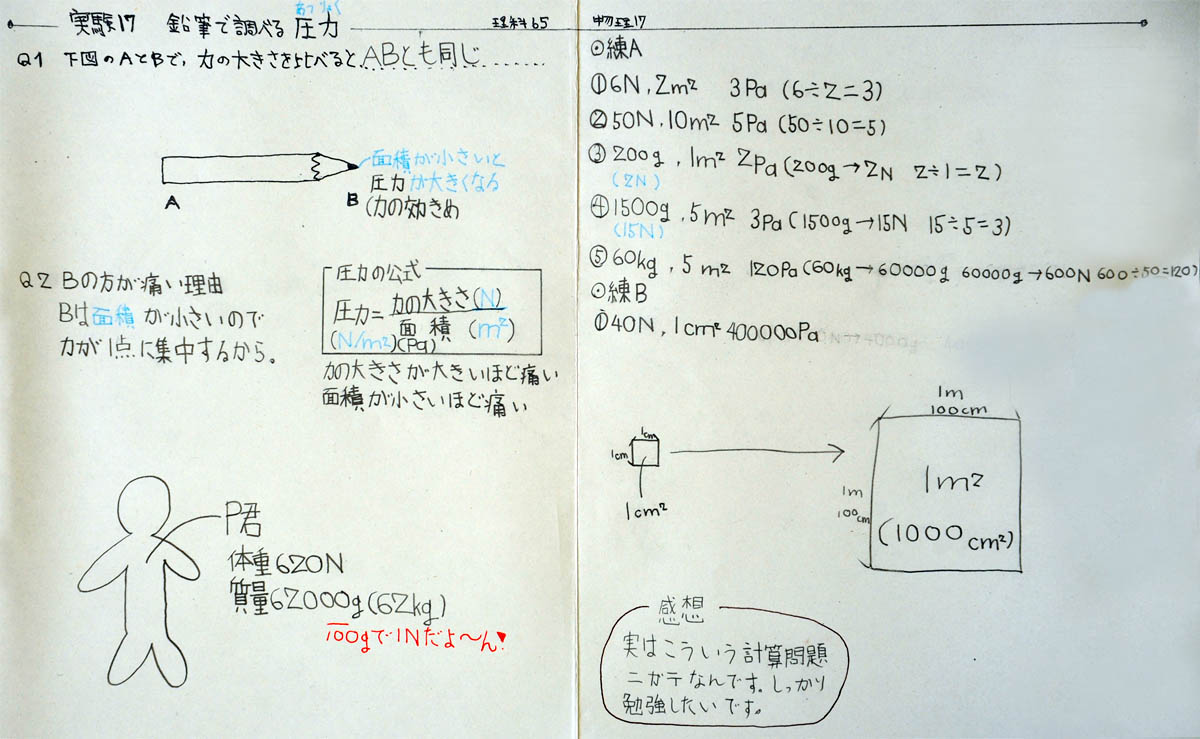 実験17 鉛筆で調べる圧力 理科65
あつりょく
Q1 下図のAとBで、力の大きさを比べるとABとも同じ
A
B
面積が小さいと
圧力が大きくなる
(力の効きめ
Q2 Bの方が痛い理由
Bは面積が小さいので
力が1点に集中するから。
圧力の公式
圧力=力の大きさ(N)
面積(m²)
(N/m²)(Pa)
力の大きさが大きいほど痛い
面積が小さいほど痛い
P君
体重620N
質量62000g(62kg)
100gで1Nだよ〜ん!
物理17
◎練A
①6N,2m² 3Pa(6÷2=3)
②50N,10m² 5Pa(50÷10=5)
③200g,1m² 2Pa(200g→2N 2÷1=2)
(2N)
④1500g,5m² 3Pa(1500g→15N 15÷5=3)
(15N)
⑤60kg,5m² 120Pa(60kg→60000g 60000g→600N 600÷50=120)
◎練B
①40N,1cm² 400000Pa
1cm
1cm
1cm²
1m
100cm
1m
100cm
1m²
(1000cm²)
感想
実はこういう計算問題
ニガテなんです。しっかり
勉強したいです。